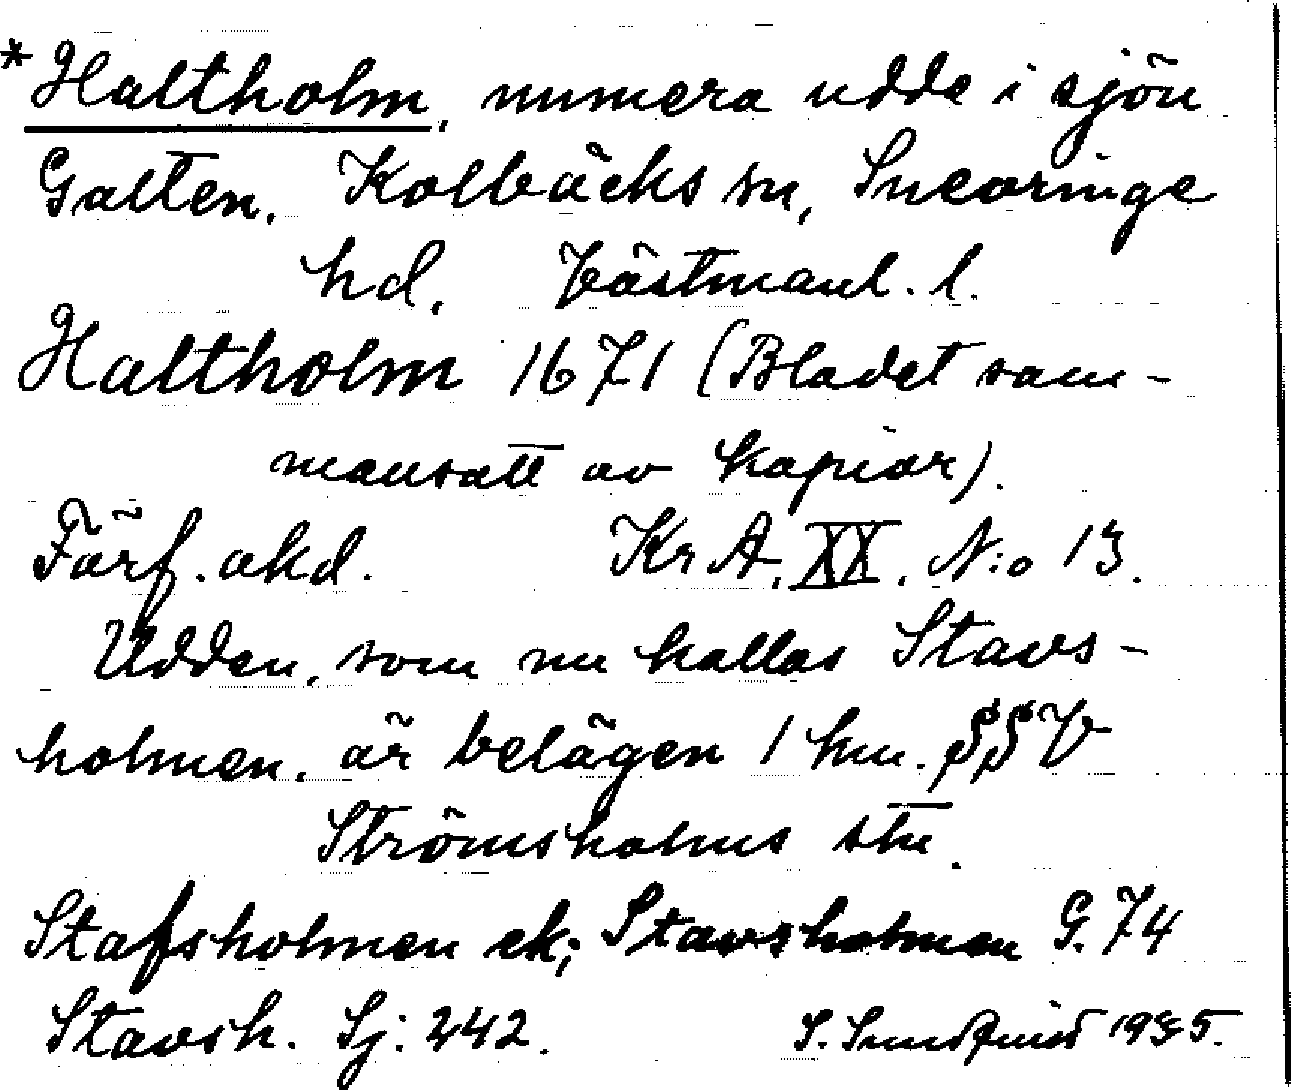 *Haltholm, numera udde i sjön
Galten, Kolbäcks sn, Snevringe
hd, Västmanl. l.
Haltholm 1671 (Bladet sam-
mansatt av kopior).
Förf. okd. KrA, XX, N:o 13.
Udden, som nu kallas Stavs-
holmen, är belägen 1 km. SSV
Strömsholms stn.
Stafsholmen ek; Stavsholmen G. 74
Stavsh. Sj: 242. S. Sundquist 1935.